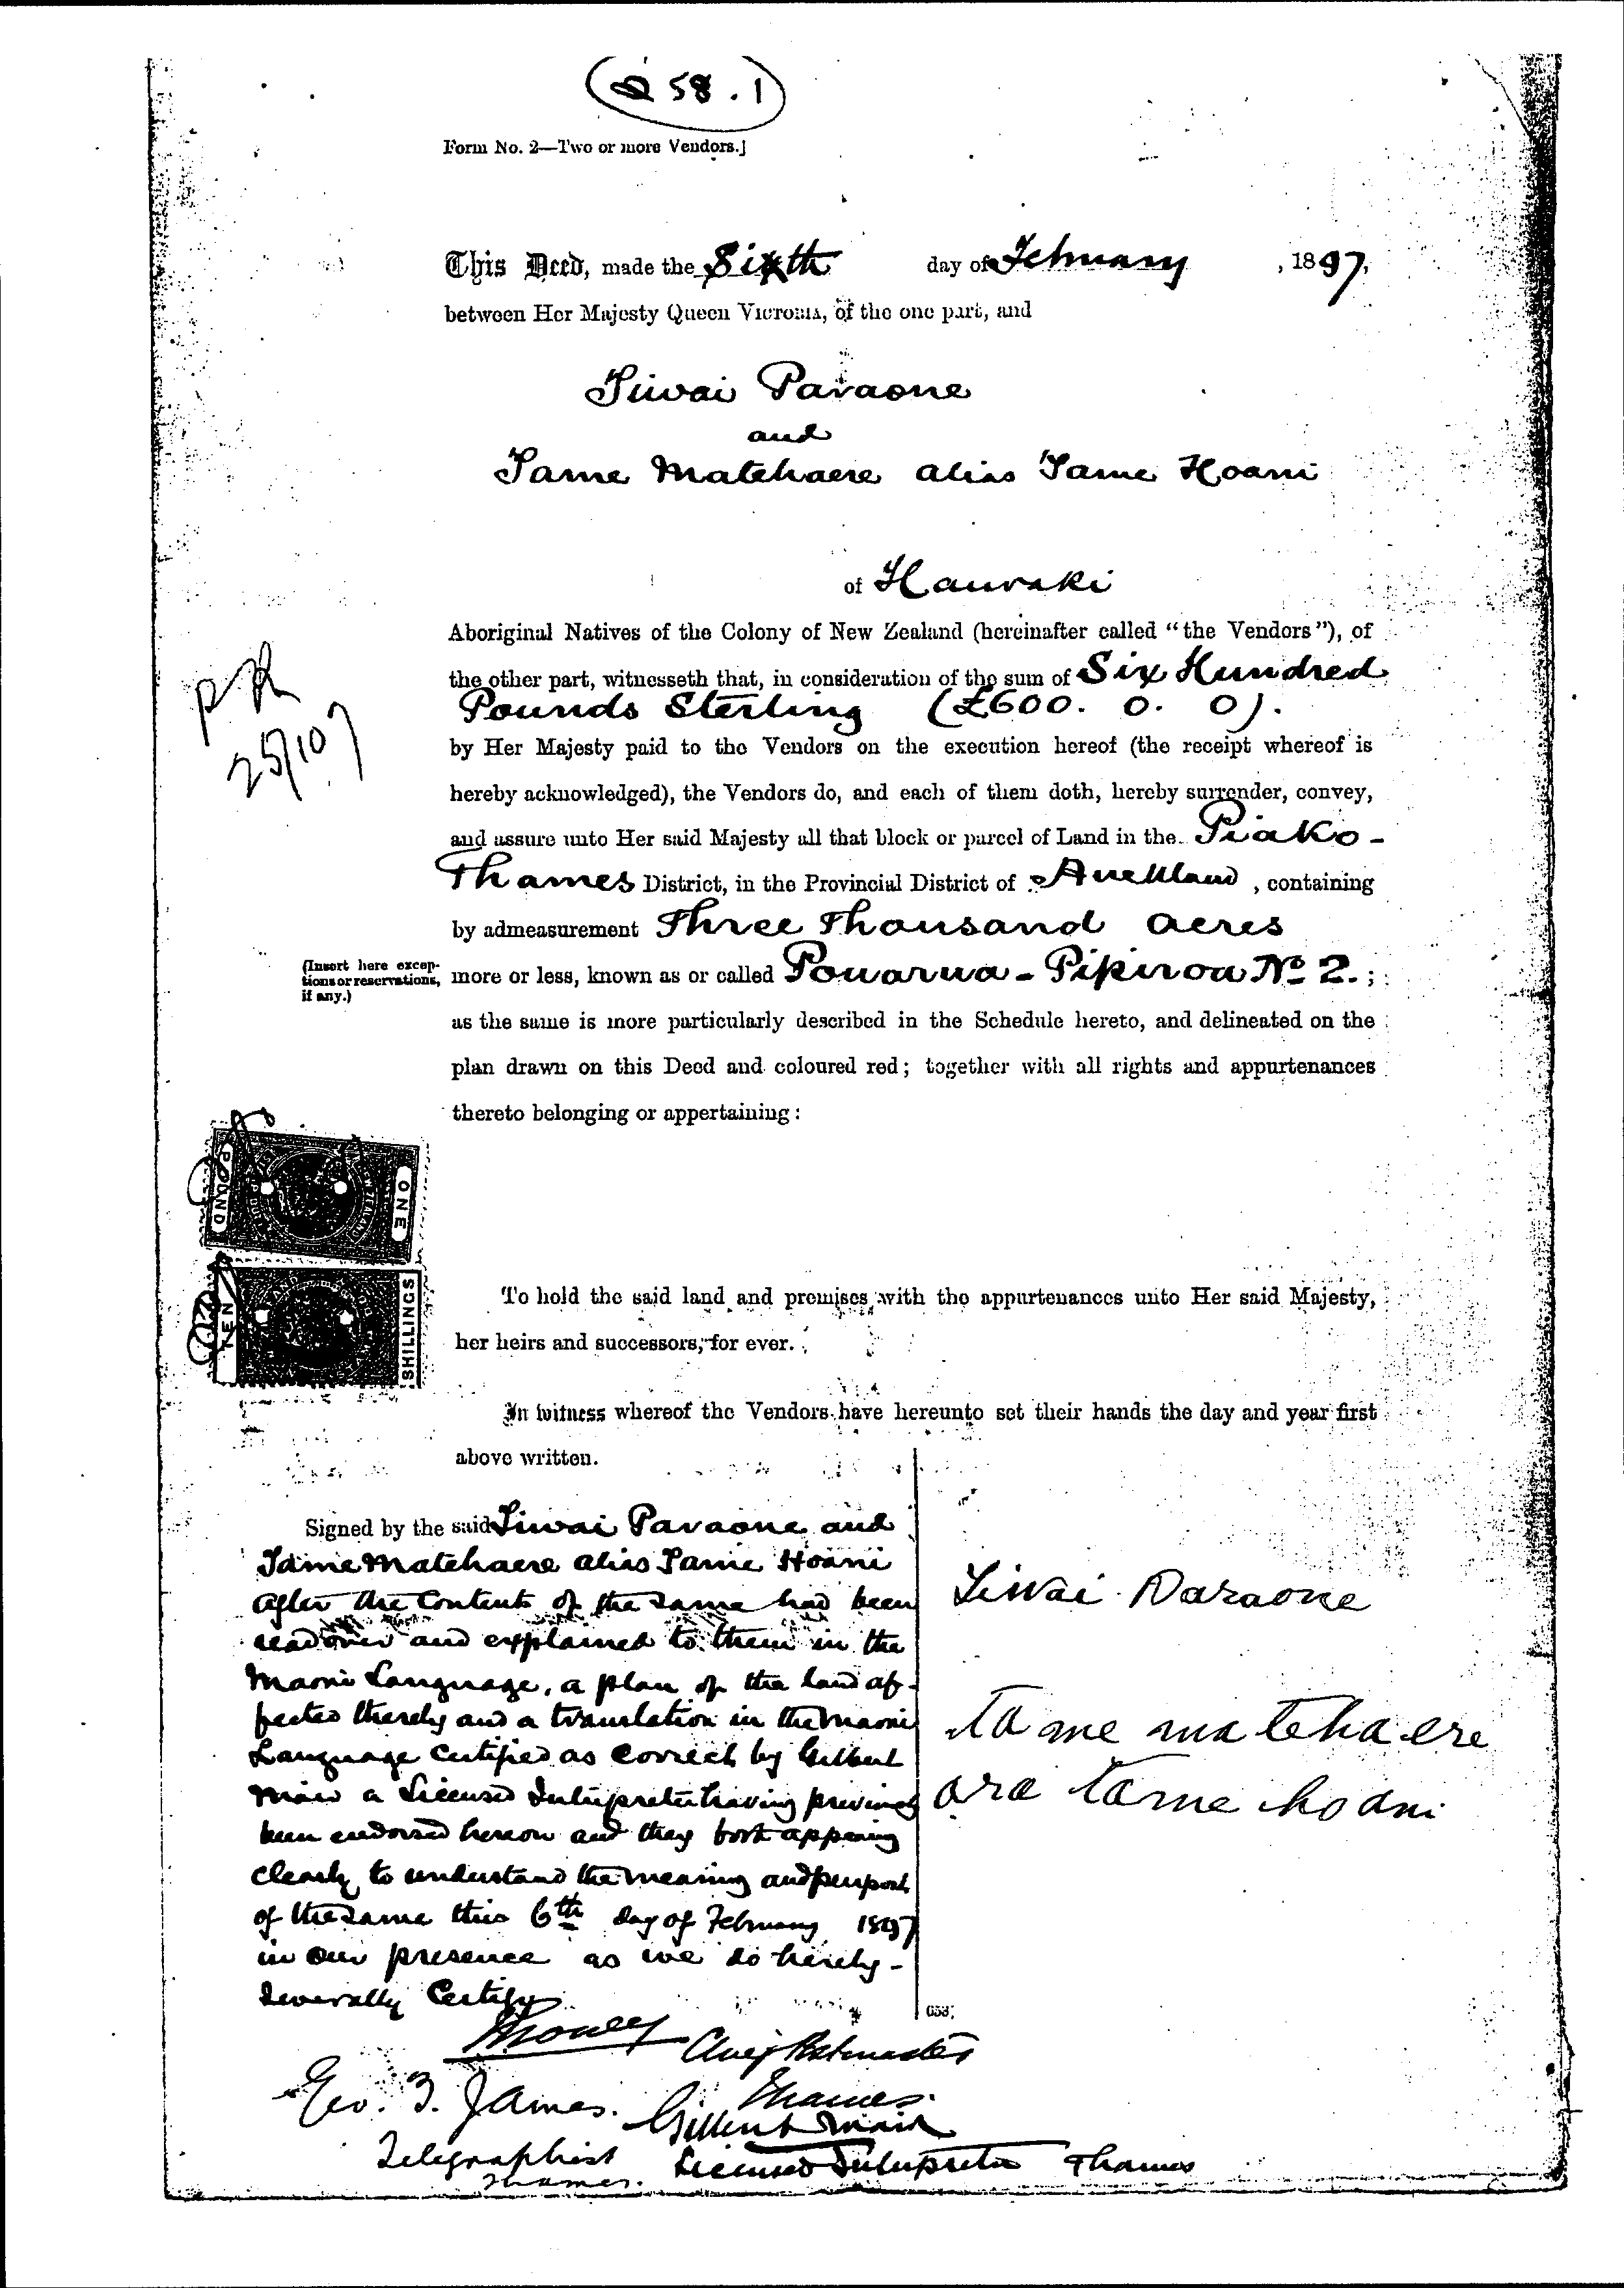 (Q 58.1)
Form No. 2—Two or more Vendors.]
This Deed, made the Sixth day of February, 1897,
between Her Majesty Queen Victoria, of the one part, and
Tiwai Paraone
and
Tame Matehaere alias Tame Hoani
of Hauraki
Aboriginal Natives of the Colony of New Zealand (hereinafter called "the Vendors"), of
the other part, witnesseth that, in consideration of the sum of Six Hundred
Pounds Sterling (£600. 0. 0).
by Her Majesty paid to the Vendors on the execution hereof (the receipt whereof is
hereby acknowledged), the Vendors do, and each of them doth, hereby surrender, convey,
and assure unto Her said Majesty all that block or parcel of Land in the Piako-
Thames District, in the Provincial District of Auckland, containing
by admeasurement Three Thousand acres
(Insert here excep-
tions or reservations,
if any.)
more or less, known as or called Pouarua-Pipiroa No 2.;
as the same is more particularly described in the Schedule hereto, and delineated on the
plan drawn on this Deed and coloured red; together with all rights and appurtenances
thereto belonging or appertaining:
25/10/
POUND
ONE
TEN
SHILLINGS
To hold the said land and premises with the appurtenances unto Her said Majesty,
her heirs and successors, for ever.
In witness whereof the Vendors have hereunto set their hands the day and year first
above written.
Signed by the said Tiwai Paraone and
Tame Matehaere alias Tame Hoani
after the Contents of the same had been
read over and explained to them in the
Maori Language, a plan of the land af-
fected thereby and a translation in the Maori
Language Certified as Correct by Gilbert
Mair a Licensed Interpreter having previously
been endorsed hereon and they both appearing
clearly to understand the meaning and purport
of the same this 6th day of February 1897
in our presence as we do hereby-
Severally Certify
Tiwai Paraone
tame matehaere
ara tame hoani
653.
Chief Postmaster
Thames.
Geo. T. James.
Telegraphist
Thames.
Gilbert Mair
Licensed Interpreter Thames